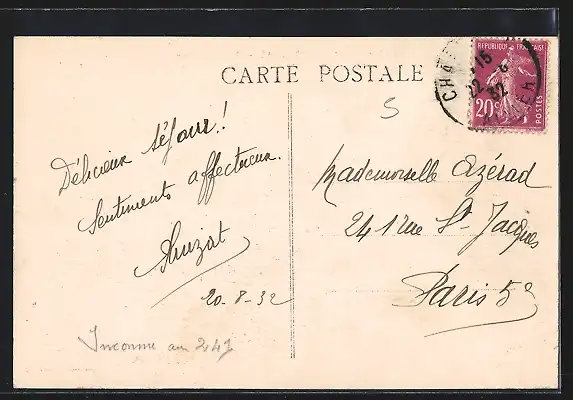 CARTE POSTALE
REPUBLIQUE FRANÇAISE
20c
POSTES
15
22-8
32
5
Délicieux séjour!
Sentiments affectueux.
20-8-32
Mademoiselle Azérad
241 rue St-Jacques
Paris 5e
Inconnue au 241